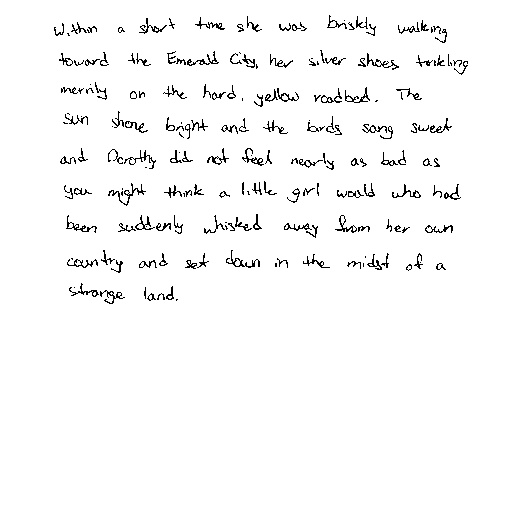 Within a short time she was briskly walking
toward the Emerald City, her silver shoes tinkling
merrily on the hard, yellow roadbed. The
sun shone bright and the birds sang sweet
and Dorothy did not feel nearly as bad as
you might think a little girl would who had
been suddenly whisked away from her own
country and set down in the midst of a
strange land.